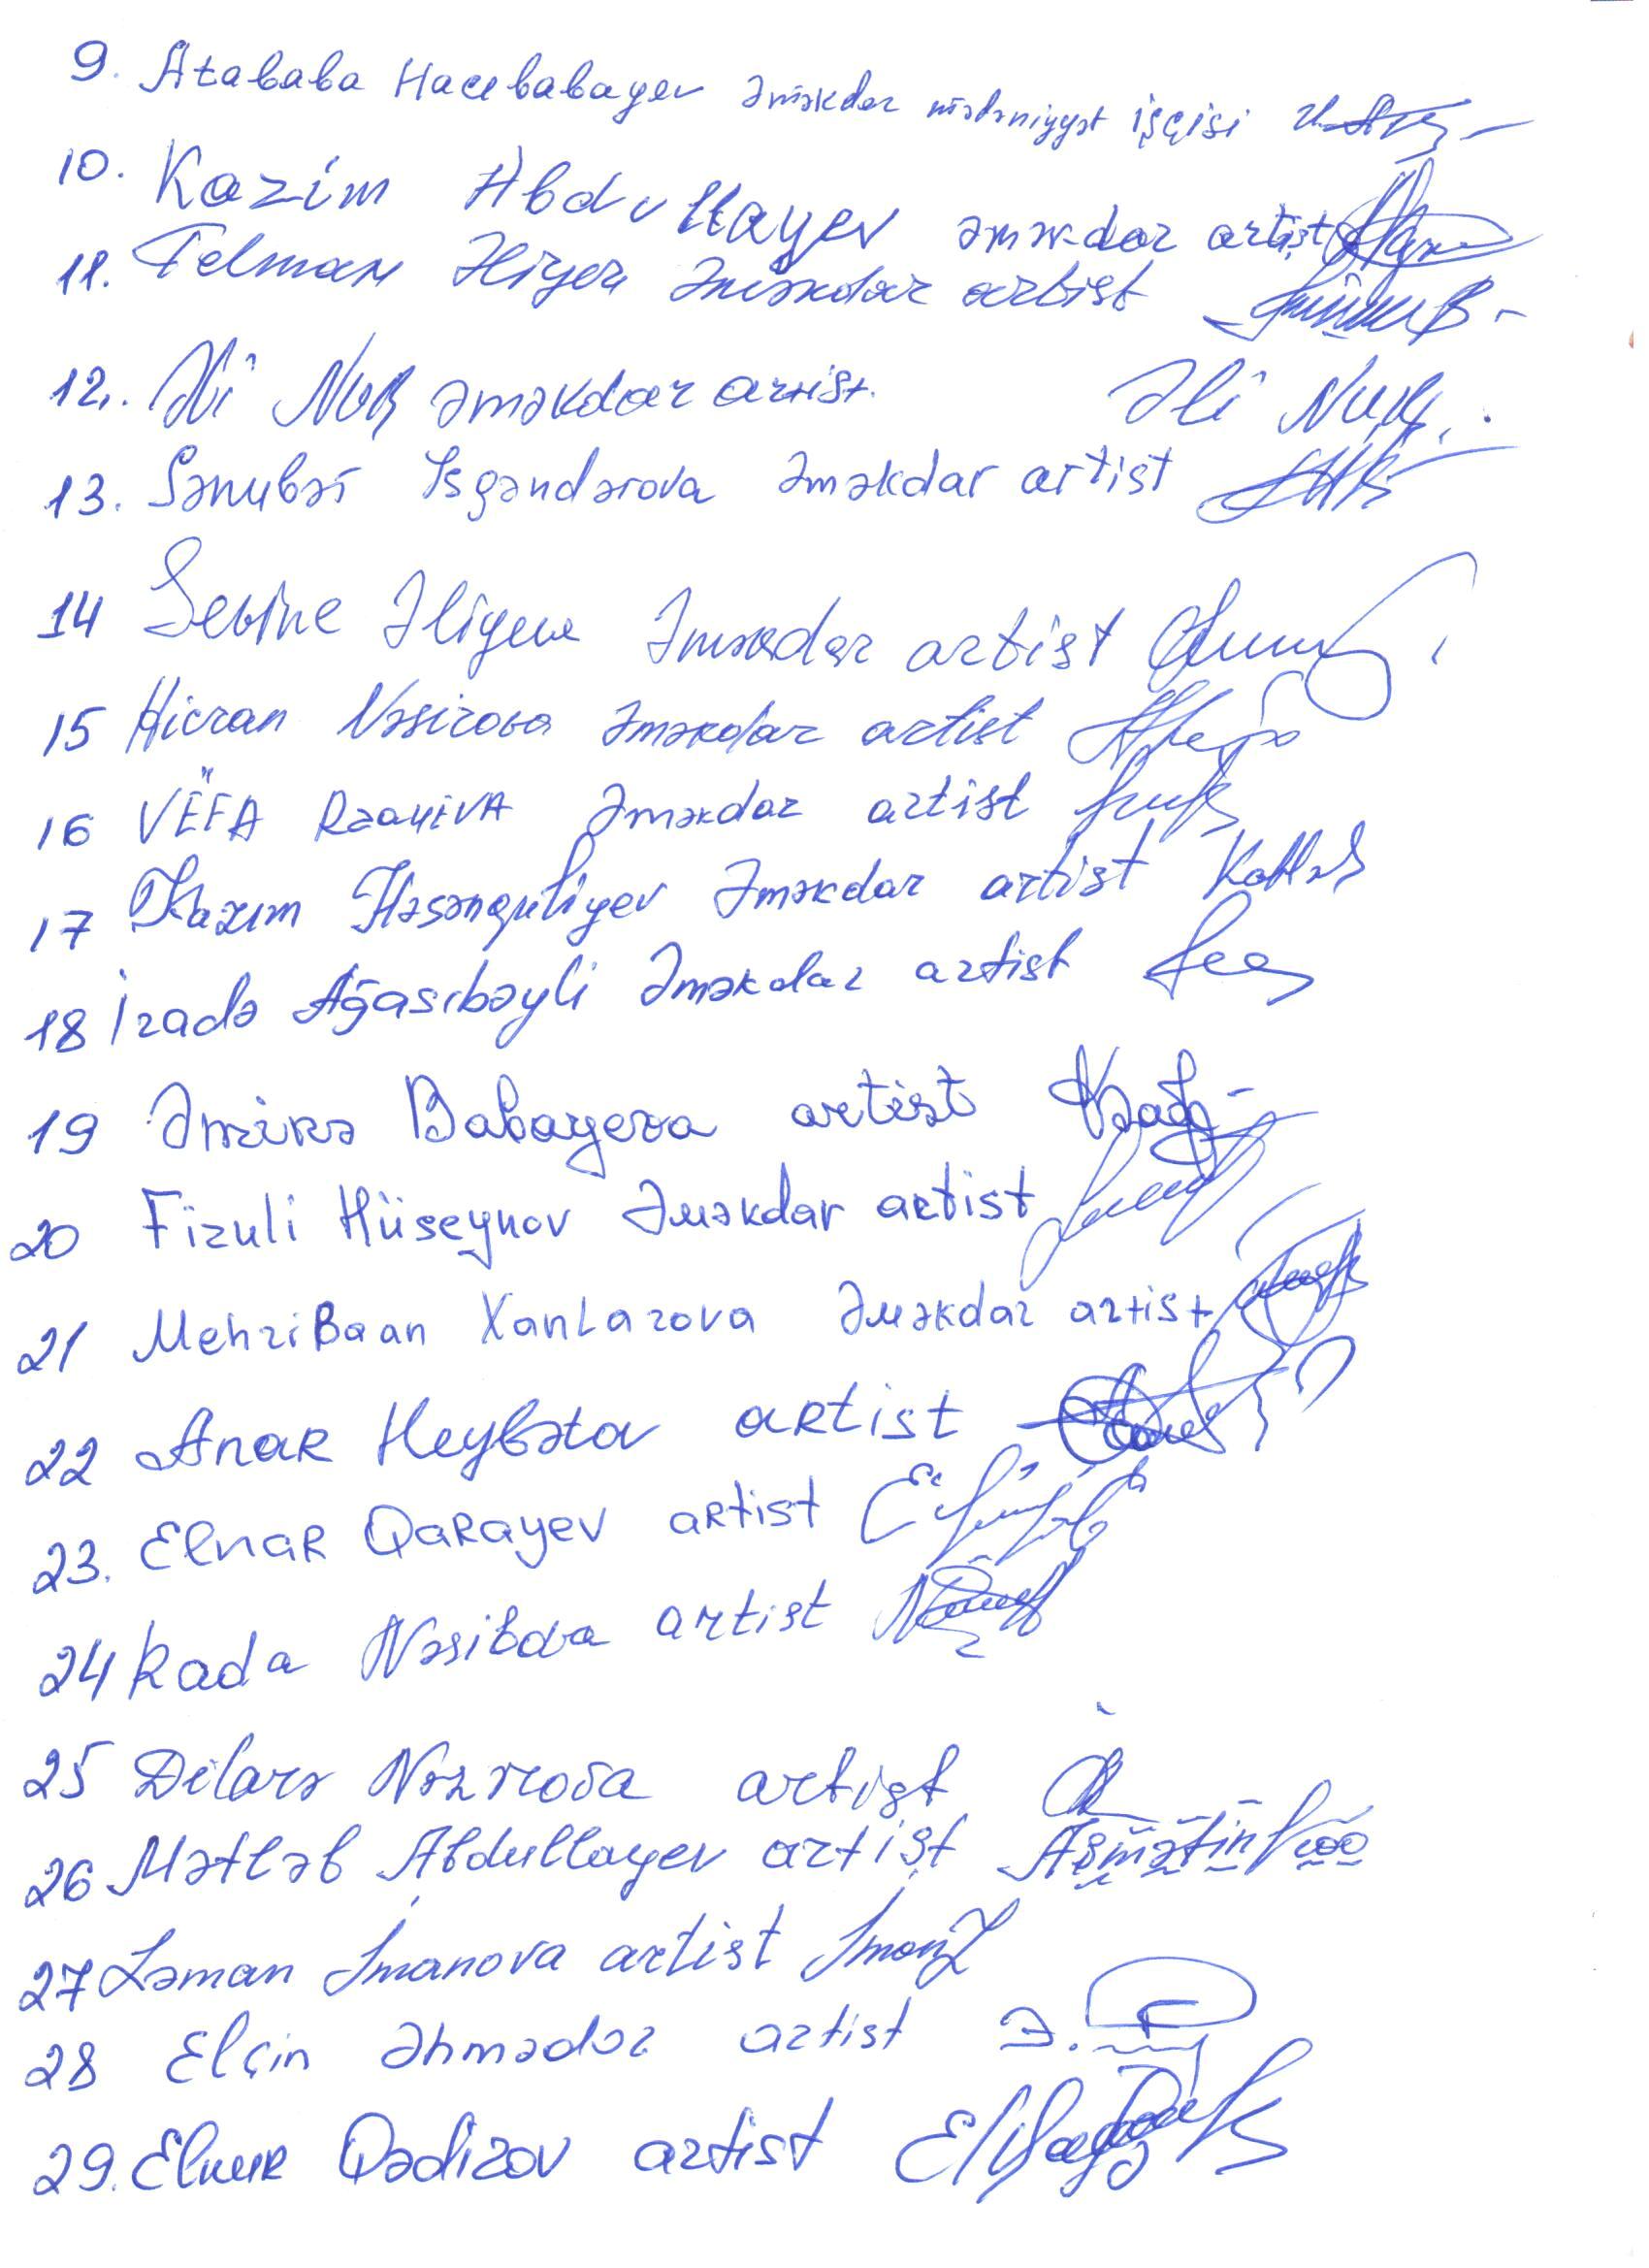 9. Atababa Hacıbabayev Əməkdar mədəniyyət işçisi
10. Kazim Abdullayev əməkdar artist
11. Telman Əliyev Əməkdar artist
12. Əli Nur əməkdar artist. Əli Nur
13. Sənubər İsgəndərova Əməkdar artist
14 Sevinc Əliyeva Əməkdar artist
15 Hicran Nəsirova Əməkdar artist
16 VEFA RzayEVA Əməkdar artist
17 Kazım Həsənquliyev Əməkdar artist
18 İradə Ağasıbəyli Əməkdar artist
19 Əminə Babayeva artist
20 Fizuli Hüseynov Əməkdar artist
21 MehriBaan XanLarova Əməkdar artist
22 AnaR Heybətov aRtist
23. ElnaR QaRayev aRtist
24 Rada Nəsibova artist
25 Dilarə Nəzirova artist
26 Mətləb Abdullayev artist
27 Ləman İmanova artist
28 Elçin Əhmədov artist
29. ElnuR Qədirov artist